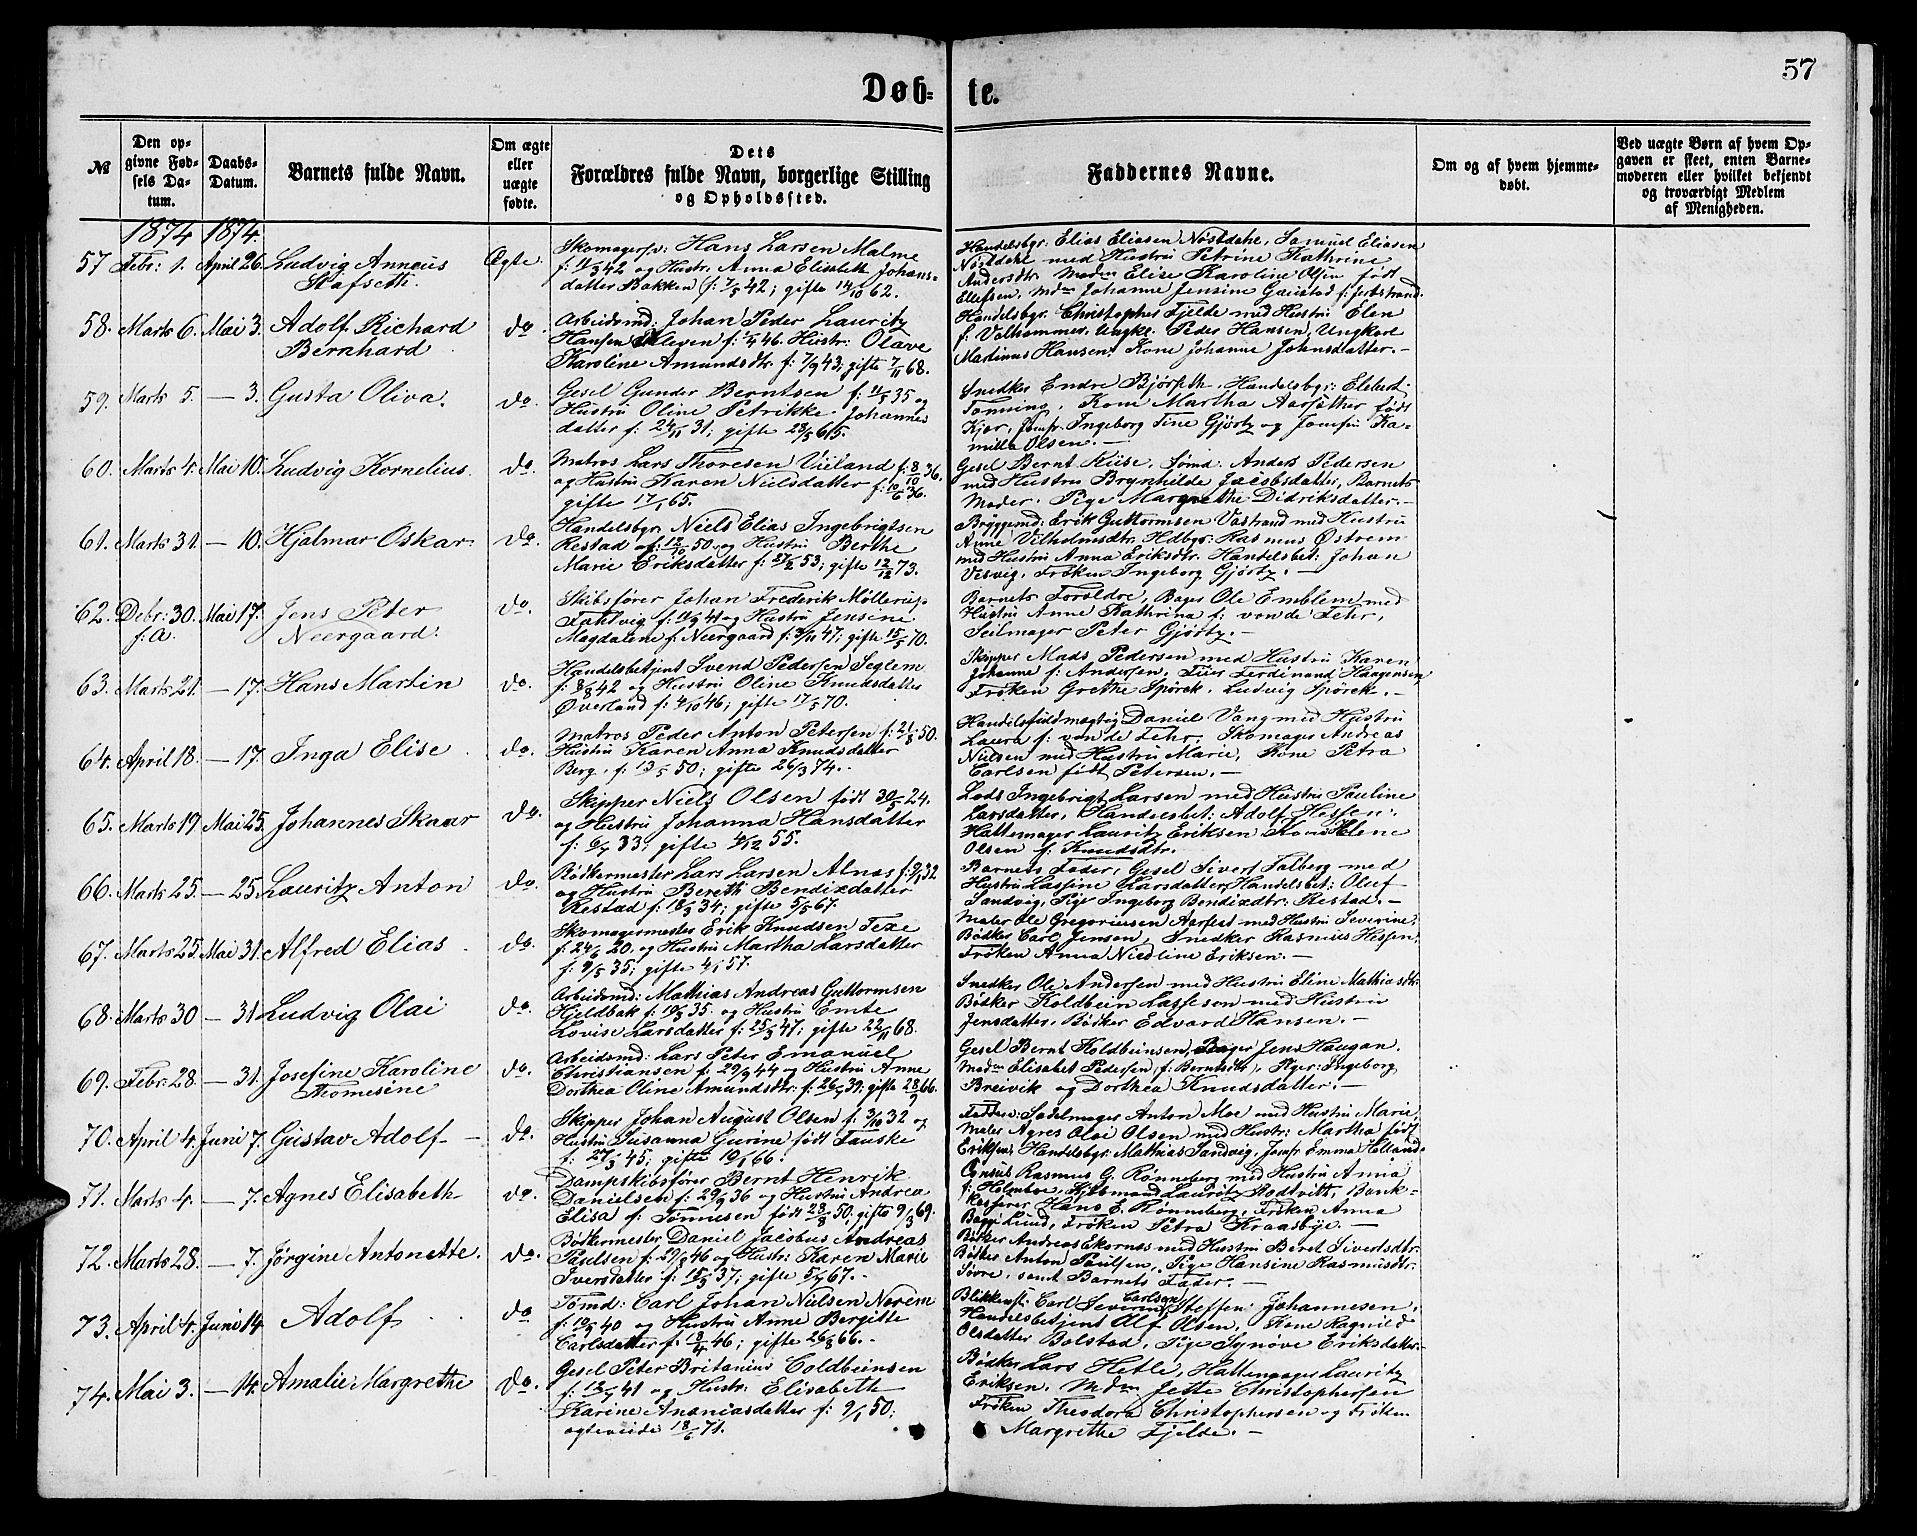 57
Døb- te.
№
Den op-
givne Fød-
sels Da-
tum.
Daabs-
Datum.
Barnets fulde Navn.
Om ægte
eller
uægte
fødte.
Dets
Forældres fulde Navn, borgerlige Stilling
og Opholdssted.
Faddernes Navne.
Om og af hvem hjemme-
døbt.
Ved uægte Børn af hvem Op-
gaven er skeet, enten Barne-
moderen eller hvilket bekjendt
og troværdigt Medlem
af Menigheden.
1874 1874.
57 Febr: 1. April 26. Ludvig Annæus
Stafseth.
Ægte.
Skomagersv: Hans Larsen Malme
f: 11/3 42 og Hustr: Anna Elisabeth Johans-
datter Bakken f: 7/5 42; gifte 14/10 62.
Handelsbgr: Elias Eliasen Nøstdahl, Samuel Eliasen
Nøstdahl med Hustru Petrine Kathrine
Andersdtr. Madm Elise Karoline Olsen født
Ellefsen, Mdm Johanne Jensine Gaustad f:
58. Marts 6. Mai 3. Adolf Richard
Bernhard
do.
Arbeidsmd: Johan Peder Lauritz
Hansen Kleven f: 46. Hustr: Olave
Karoline Amundsdtr. f: 7/9 43; gifte 7/11 68.
Handelsbgr. Christopher Fjelde med Hustru Elen
f. Volhammer, Ungkl. Peder Hansen, Ungkarl
Martinus Hansen, Kone Johanne Johnsdatter.-
59. Marts 5. - 3. Gusta Oliva.
do.
Gesel Gunder Berntsen f: 11/5 35 og
Hustru Oline Petrikke Johannes
datter f: 24/11 31; gifte 28/5 65.
Snedker Endre Bjørseth, Handelsbgr: Elebert
Tonning, Kone Martha Aarsæther født
Kjær, Jomfr. Ingeborg Tine Gjørtz og Jomfru Ka-
milla Olsen.-
60. Marts 4. Mai 10. Ludvig Kornelius.
do.
Matros Lars Thoresen Viiland f: 8/10 36.
og Hustru Karen Nielsdatter f: 10/6 36.
gifte 17/1 65.
Gesel Bernt Riise, Tømd. Anders Pedersen
med Hustru Brynhilde Jacobsdatter, Barnets
Moder, Pige Margrethe Didriksdatter.-
61. Marts 31. - 10. Hjalmar Oskar.
do.
Handelsbgr Niels Elias Ingebrigtsen
Restad f: 12/10 50 og Hustru Berthe
Marie Eriksdatter f: 27/2 53; gifte 12/12 73.
Bryggemd: Erik Guttormsen Vastrand med Hustru
Anne Vilholmsdtr. Hdbgr: Rasmus Østrem
med Hustru Anna Eriksdtr. Handelsbet: Johan
Vesvig, Frøken Ingeborg Gjørtz.-
62. Debr: 30. Mai 17. Jens Peter
f. A. Neergaard.
do.
Skibsfører Johan Frederik Møllerup
Fahlvig f: 41 og Hustru Jensine
Magdalene f. Neergaard f: 47; gifte 15/5 70.
Barnets Foræ̈ldre, Bager Ole Emblem med
Hustru Anne Kathrina f: von de Fehr,
Seilmager Peter Gjørtz.-
63. Marts 21. - 17. Hans Martin
do.
Handelsbetjent Svend Pedersen Seglem
f: 8/8 42 og Hustru Oline Knudsdatter
Øverland f: 4/10 46; gifte 17/5 70.
Skipper Mads Pedersen med Hustru Karen
Johanne f: Andersen, Ferdinand Haagensen,
Frøken Grethe Spørck, Ludvig Spørck.-
64. April 18. - 17. Inga Elise
do.
Matros Peder Anton Petersen f: 21/8 50.
Hustru Karen Anna Knudsdatter
Berg. f: 13/5 50; gifte 26/3 74.-
Handelsfuldmægtig Daniel Vang med Hustru
Laura f: von de Fehr, Skomager Andreas
Nielsen med Hustru Marie, Kone Petra
Carlsen født Petersen.-
65. Marts 19 Mai 25. Johannes Skaar
do.
Skipper Niels Olsen født 30/5 24.
og Hustru Johanna Hansdatter
f: 33; gifte 4/12 55.
Lods Ingebrigt Larsen med Hustru Pauline
Larsdatter, Handelsbet: Adolf Hessen.
Hattemager Lauritz Eriksen Kone Helene
Olsen f: Knudsdtr.
66. Marts 25. - 25. Lauritz Anton
do.
Bødkermester Lars Larsen Alnæs f: 32
og Hustru Bereth Bendixdatter
Restad f: 18/9 34; gifte 5/5 67.
Barnets Fader, Gesel Sivert Talberg med
Hustru Lassine Larsdatter, Handelsbet: Oluf
Sandvig, Pige Ingeborg Bendixdtr: Restad.-
67. Marts 25. Mai 31. Alfred Elias
do.
Skomagermester Erik Knudsen Texe
f: 24/6 20, og Hustru Martha Larsdatter
f: 9/5 35; gifte 4/1 57.
Maler Ole Gregoriusen Aarset med Hustru Severine,
Bødker Carl Jensen, Snedker Rasmus Hessen,
Frøken Anna Nicoline Eriksen.-
68. Marts 30 - 31 Ludvig Olai
do.
Arbeidsmd: Mathias Andreas Guttormsen
Hjeldbak f: 19/3 35. og Hustru Emte
Lovise Larsdatter f: 25/3 47; gifte 22/11 68.
Snedker Ole Andersen med Hustru Eline Mathiasdtr.
Bødker Koldbein Lasseson med Hustru
Jensdatter, Bødker Edvard Hansen.-
69. Febr: 28. - 31. Josefine Karoline
Thomesine
do.
Arbeidsmd: Lars Peter Emanuel
Christiansen f: 29/9 44 og Hustru Anne
Dorthea Oline Amundsdtr: f: 26/7 39; gifte 28/9 66.
Gesel Bernt Koldbeinsen, Bager Jens Haugan.
Madm Elisabet Pedersen, f: Berntsdtr, Piger: Ingeborg
Breivik og Dorthea Knudsdatter.-
70. April 4. Juni 7. Gustav Adolf -
do.
Skipper Johan August Olsen f: 3/10 32 og
Hustru Susanna Gurine født Fauske
f: 27/3 45; gifte 19/1 66.
Faddere: Sadelmager Anton Moe med Hustru Marie,
Maler Agnes Olai Olsen med Hustr: Martha født
Eriksen, Handelsbgr: Mathias Sandvig, Jomfr. Emma Holland.
71. Marts 4. - 7. Agnes Elisabeth
do.
Dampskibsfører Bernt Henrik
Danielsen f: 29/9 36 og Hustru Andrea
Elisa f: Tønnesen født 28/8 50; gifte 9/3 69.
Consul Rasmus G. Rønneberg med Hustru Anna
f: Holmboe, Kjøbmand Lauritz Rodtvitt, Bank-
kasserer Hans E. Rønneberg, Frøken Anna
Bagge Lund, Frøken Petra Kraasbye.-
72. Marts 28. - 7. Jørgine Antonette.
do.
Bødkermester Daniel Jacobus Andreas
Paulsen f: 29/8 46 og Hustr: Karen Marie
Iversdatter f: 15/3 37; gifte 5/7 67.-
Bødker Andreas Ekornæs med Hustru Beret Sivertsdtr.
Bødker Anton Paulsen, Pige Hansine Rasmusdtr.
Søvre, samt Barnets Fader.-
73. April 4. Juni 14 Adolf
do
Tømd: Carl Johan Nielsen Nerem
f: 19/5 40 og Hustru Anne Bergitte
Carlsdatter f: 18/4 46; gifte 26/8 66.-
Blikkensl: Carl Severin Carlsen, Steffen Johannesen,
Handelsbetjent Alf Olsen, Kone Ragnild
Olsdatter Bolstad, Pige Synøve Eriksdatter.
74. Mai 3. - 14. Amalie Margrethe
do.
Gesel Peter Britanius Coldbeinsen
f: 41 og Hustr: Elisabeth
Karine Ananiasdatter f: 9/1 50;
ægteviede 18/6 71.
Bødker Lars Hetle, Hattemager Lauritz
Eriksen, Mdm Jette Christophersen
Frøken Theodora Christophersen og Frøken
Margrethe Fjelde.-